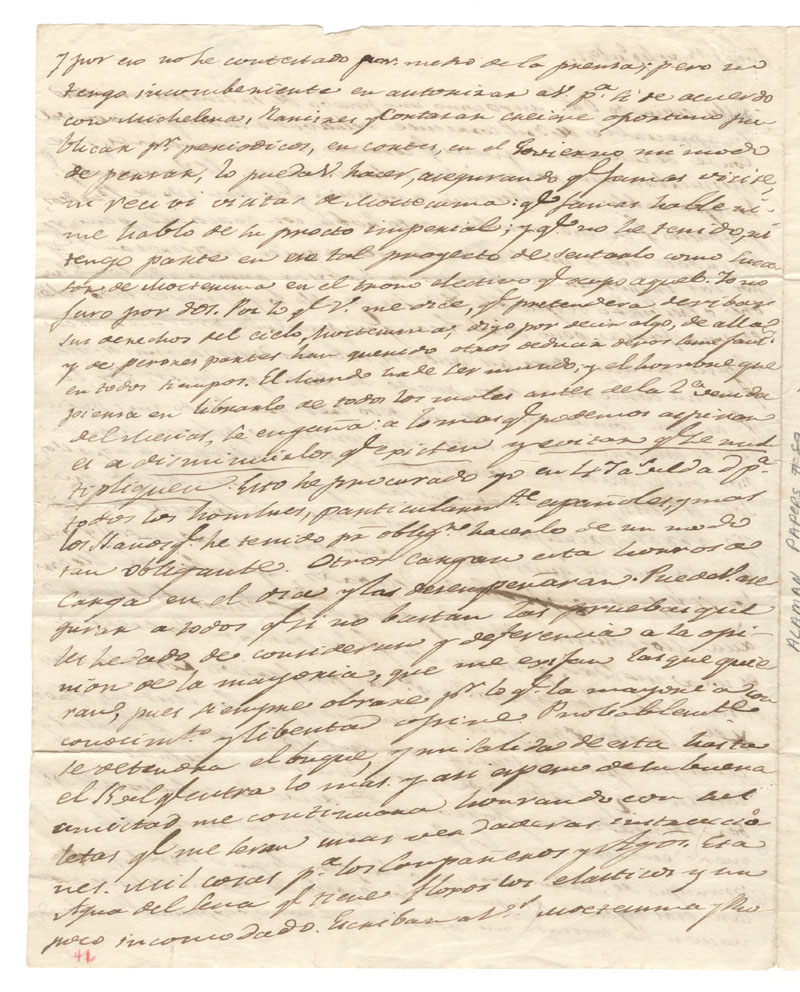 y por eso no he contestado por medio de la prensa; pero no
tengo incombeniente en autorizar a V. pª. qª si de acuerdo
con Michelena, Ramires y Contasar creise oportuno pu
blicar pr. periodicos, en cortes, en el Govierno mi modo
de pensar, lo pueda V. hacer, asegurando qe. jamas visite,
ni recivi visitas de Moctezuma: qe. jamas hable ni
me hablo de su proecto imperial; y qe. no he tenido, ni
tengo parte en ese tal proyecto de sentarlo como suce
sor de Moctezuma en el trono electivo qe. ocupo aquel. Yo no
juro por dos. Por lo qe. V. me dice, qe. pretendera derivar
sus derechos del cielo, Moctezuma; digo por decir algo, de alla,
y de peores partes han querido otros deducir
en todos tiempos. El Mundo ha de ser mundo; y el hombre que
piensa en librarlo de todos los males antes de la 2ª. venida
del Mecias, se engaña: a lo mas qe. podemos aspirar
es a disminuirlos qe. existen y evitar qe. se mul
tipliquen. Esto he procurado yo en 47 aˢ. de edad pª.
todos los hombres, particularmte. españoles, y mas
los Llanos qe. he tenido pr. obligⁿ. hacerlo de un modo
tan obligante. Otros cargan esta honrosa
carga en el dia y las desempeñaran. Puede V. ase
gurar a todos qe. si no bastan las pruebas qe
les he dado de consideran. y deferencia a la opi-
nion de la mayoria, que me exijan las que quie
ran, pues siempre obrare pr. lo qe. la mayoria con
conocimto. y libertad opine. Probablemte.
se detendra el buque, y mi salida de esta hasta
el 15 del qe. entra lo mas y asi espero de su buena
amistad me continuara honrando con sus
letas qe. me seran unas verdaderas instruccio
nes. Mil cosas pª. los Compañeros y Agos. Esta
Agua del Sena qe. tiene flojos los elasticos y un
poco incomodado. Escriban al Sr. Moctezuma y Ro
42
ALAMAN PAPERS #83